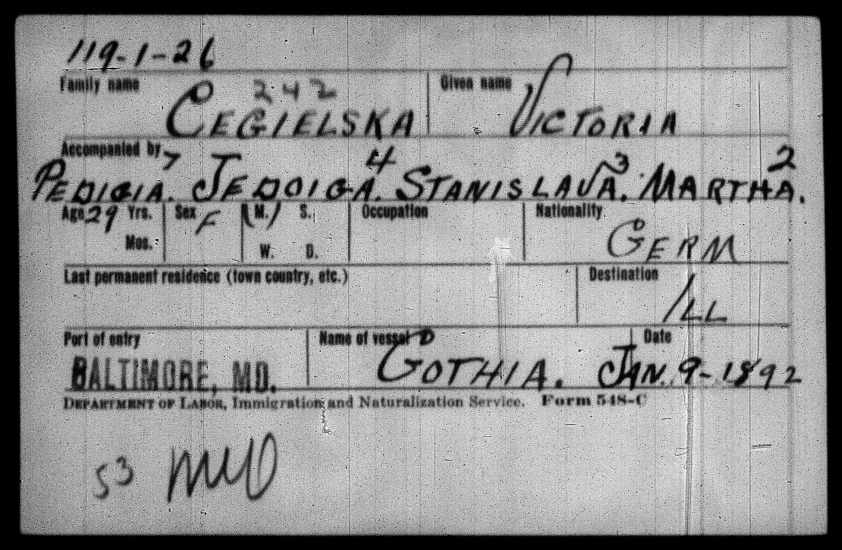 119-1-26
Family name 242 CEGIELSKA Given name VICTORIA
Accompanied by 7 4 3 2
PEDIGIA. JEDOIGA. STANISLAVA. MARTHA.
Age 29 Yrs. Sex F (M.) S. Occupation Nationality
Mos. W. D. GERM
Last permanent residence (town country, etc.) Destination
ILL
Port of entry Name of vessel D Date
BALTIMORE, MD. GOTHIA. JAN. 9-1892
DEPARTMENT OF LABOR, Immigration and Naturalization Service. Form 548-C
53